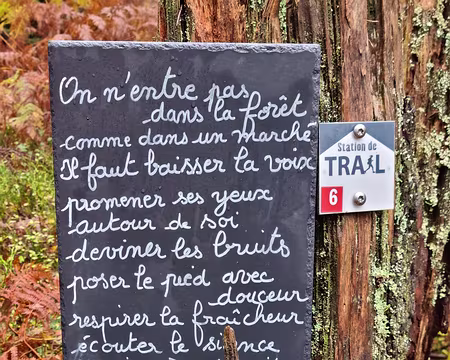 On n'entre pas
dans la forêt
comme dans un marché
Il faut baisser la voix
promener ses yeux
autour de soi
deviner les bruits
poser le pied avec
douceur
respirer la fraîcheur
écouter le silence
Station de
TRAIL
6